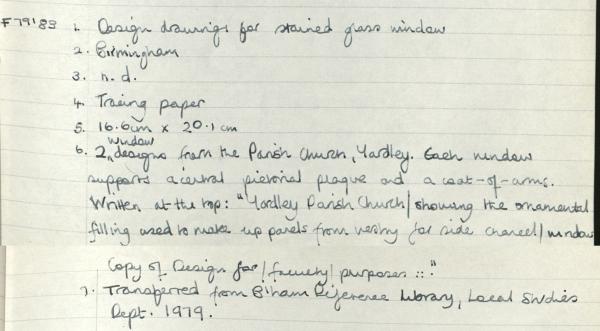 F79'83 1. Design drawings for stained glass window
2. Birmingham
3. n.d.
4. Tracing paper
5. 16.6cm x 20.1cm
window
6. 2 designs from the Parish Church, Yardley. Each window
supports a central pictorial plaque and a coat-of-arms.
Written at the top: "Yardley Parish Church/ showing the ornamental
filling used to make up panels from vestry for side chancel/ window
Copy of Design for/ faculty/ purposes ::."
7. Transferred from B'ham Reference Library, Local Studies
Dept. 1979.